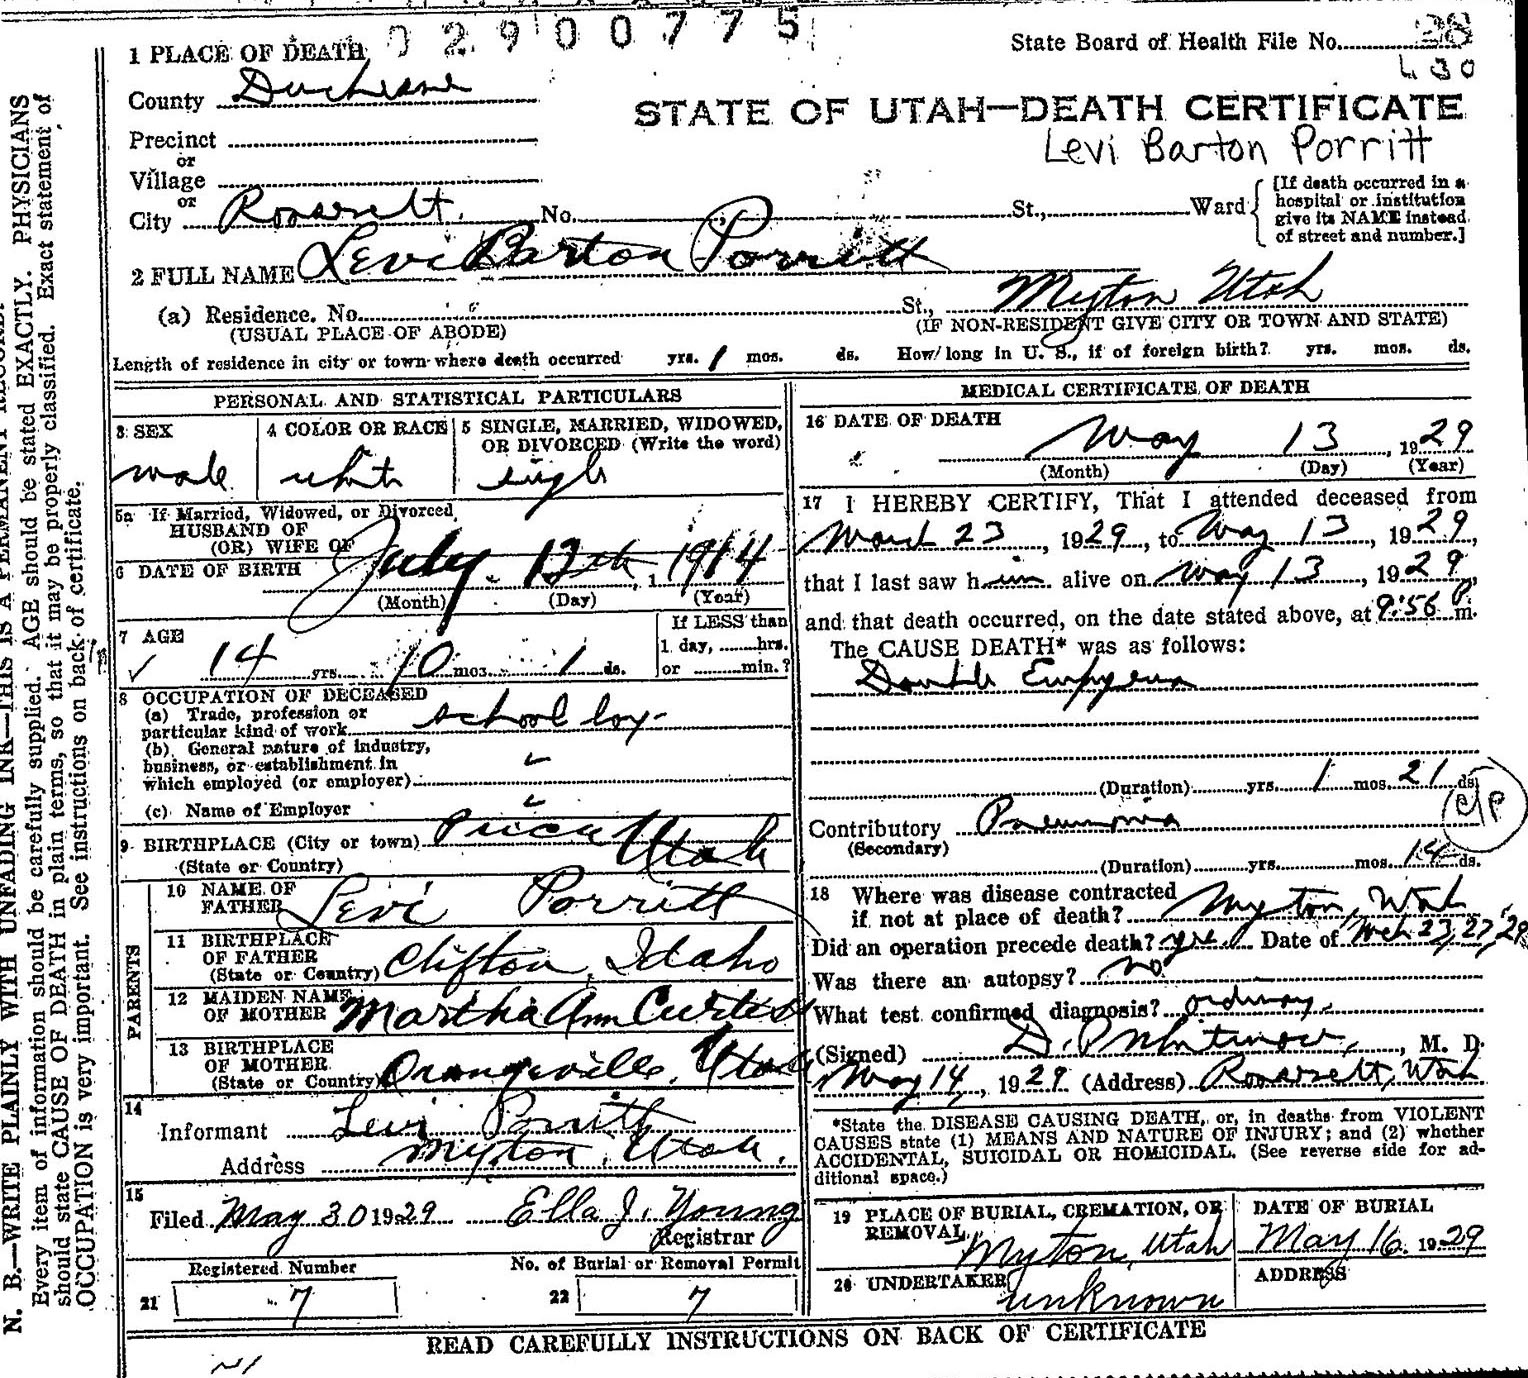 02900775
State Board of Health File No. 28
430
1 PLACE OF DEATH
County Duchesne
STATE OF UTAH—DEATH CERTIFICATE
Levi Barton Porritt
Precinct
or
Village
or
City Roosevelt. No. St., Ward
[If death occurred in a
hospital or institution
give its NAME instead
of street and number.]
2 FULL NAME Levi Barton Porritt
(a) Residence. No. St., Myton Utah
(USUAL PLACE OF ABODE) (IF NON-RESIDENT GIVE CITY OR TOWN AND STATE)
Length of residence in city or town where death occurred yrs. 1 mos. ds. How long in U. S., if of foreign birth? yrs. mos. ds.
PERSONAL AND STATISTICAL PARTICULARS
3 SEX
male
4 COLOR OR RACE
white
5 SINGLE, MARRIED, WIDOWED,
OR DIVORCED (Write the word)
single
5a If Married, Widowed, or Divorced
HUSBAND OF
(OR) WIFE OF
6 DATE OF BIRTH July 12th 1 1914
(Month) (Day) (Year)
7 AGE
14 yrs. 10 mos. 1 ds.
If LESS than
1 day, hrs.
or min.?
8 OCCUPATION OF DECEASED
(a) Trade, profession or
particular kind of work school boy
(b) General nature of industry,
business, or establishment in
which employed (or employer)
(c) Name of Employer
9 BIRTHPLACE (City or town) Price Utah
(State or Country)
PARENTS
10 NAME OF
FATHER Levi Porritt
11 BIRTHPLACE
OF FATHER
(State or Country) Clifton, Idaho
12 MAIDEN NAME
OF MOTHER Martha Ann Curtis
13 BIRTHPLACE
OF MOTHER
(State or Country) Orangeville, Utah
14
Informant Levi Porritt
Address Myton, Utah.
15
Filed May 30 1929 Ella J. Young
Registrar
Registered Number No. of Burial or Removal Permit
21 7 22 7
MEDICAL CERTIFICATE OF DEATH
16 DATE OF DEATH
May 13, 1929
(Month) (Day) (Year)
17 I HEREBY CERTIFY, That I attended deceased from
March 23, 1929, to May 13, 1929,
that I last saw him alive on May 13, 1929,
and that death occurred, on the date stated above, at 9:56 P. m.
The CAUSE DEATH* was as follows:
Double Empyema
(Duration) yrs. 1 mos. 21 ds.
C/P
Contributory Pneumonia
(Secondary)
(Duration) yrs. mos. 14 ds.
18 Where was disease contracted
if not at place of death? Myton, Utah
Did an operation precede death? yes Date of Mch 23, 27, '29
Was there an autopsy? no
What test confirmed diagnosis? ordinary.
(Signed) D. P. Whitmore, M. D.
May 14, 1929 (Address) Roosevelt, Utah
*State the DISEASE CAUSING DEATH, or, in deaths from VIOLENT
CAUSES state (1) MEANS AND NATURE OF INJURY; and (2) whether
ACCIDENTAL, SUICIDAL OR HOMICIDAL. (See reverse side for ad-
ditional space.)
19 PLACE OF BURIAL, CREMATION, OR
REMOVAL Myton, Utah
DATE OF BURIAL
May 16. 1929
20 UNDERTAKER
unknown
ADDRESS
READ CAREFULLY INSTRUCTIONS ON BACK OF CERTIFICATE
N. B.—WRITE PLAINLY WITH UNFADING INK—THIS IS A PERMANENT RECORD.
Every item of information should be carefully supplied. AGE should be stated EXACTLY. PHYSICIANS
should state CAUSE OF DEATH in plain terms, so that it may be properly classified. Exact statement of
OCCUPATION is very important. See instructions on back of certificate.